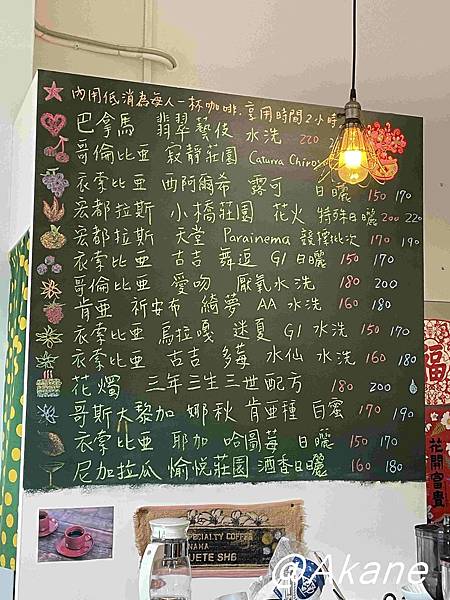 內用低消為每人一杯咖啡.享用時間2小時
巴拿馬 翡翠藝伎 水洗 220
哥倫比亞 寂靜莊園 Caturra Chiroso
衣索比亞 西阿爾希 露可 日曬 150 170
宏都拉斯 小橋莊園 花火 特殊日曬 200 220
宏都拉斯 天堂 Parainema 競標批次 170 190
衣索比亞 古吉 舞逗 G1 日曬 150 170
哥倫比亞 愛吻 厭氧水洗 180 200
肯亞 祈安布 綺夢 AA 水洗 160 180
衣索比亞 烏拉嘎 迷夏 G1 水洗 150 170
衣索比亞 古吉 多莓 水仙 水洗 160 180
花燭 三年三生三世配方 180 200
哥斯大黎加 娜秋 肯亞種 白蜜 170 190
衣索比亞 耶加 哈圖莓 日曬 150 170
尼加拉瓜 愉悅莊園 酒香日曬 160 180
福
花開富貴
SPECIALTY COFFEE
PANAMA
BOQUETE SHB
@Akane